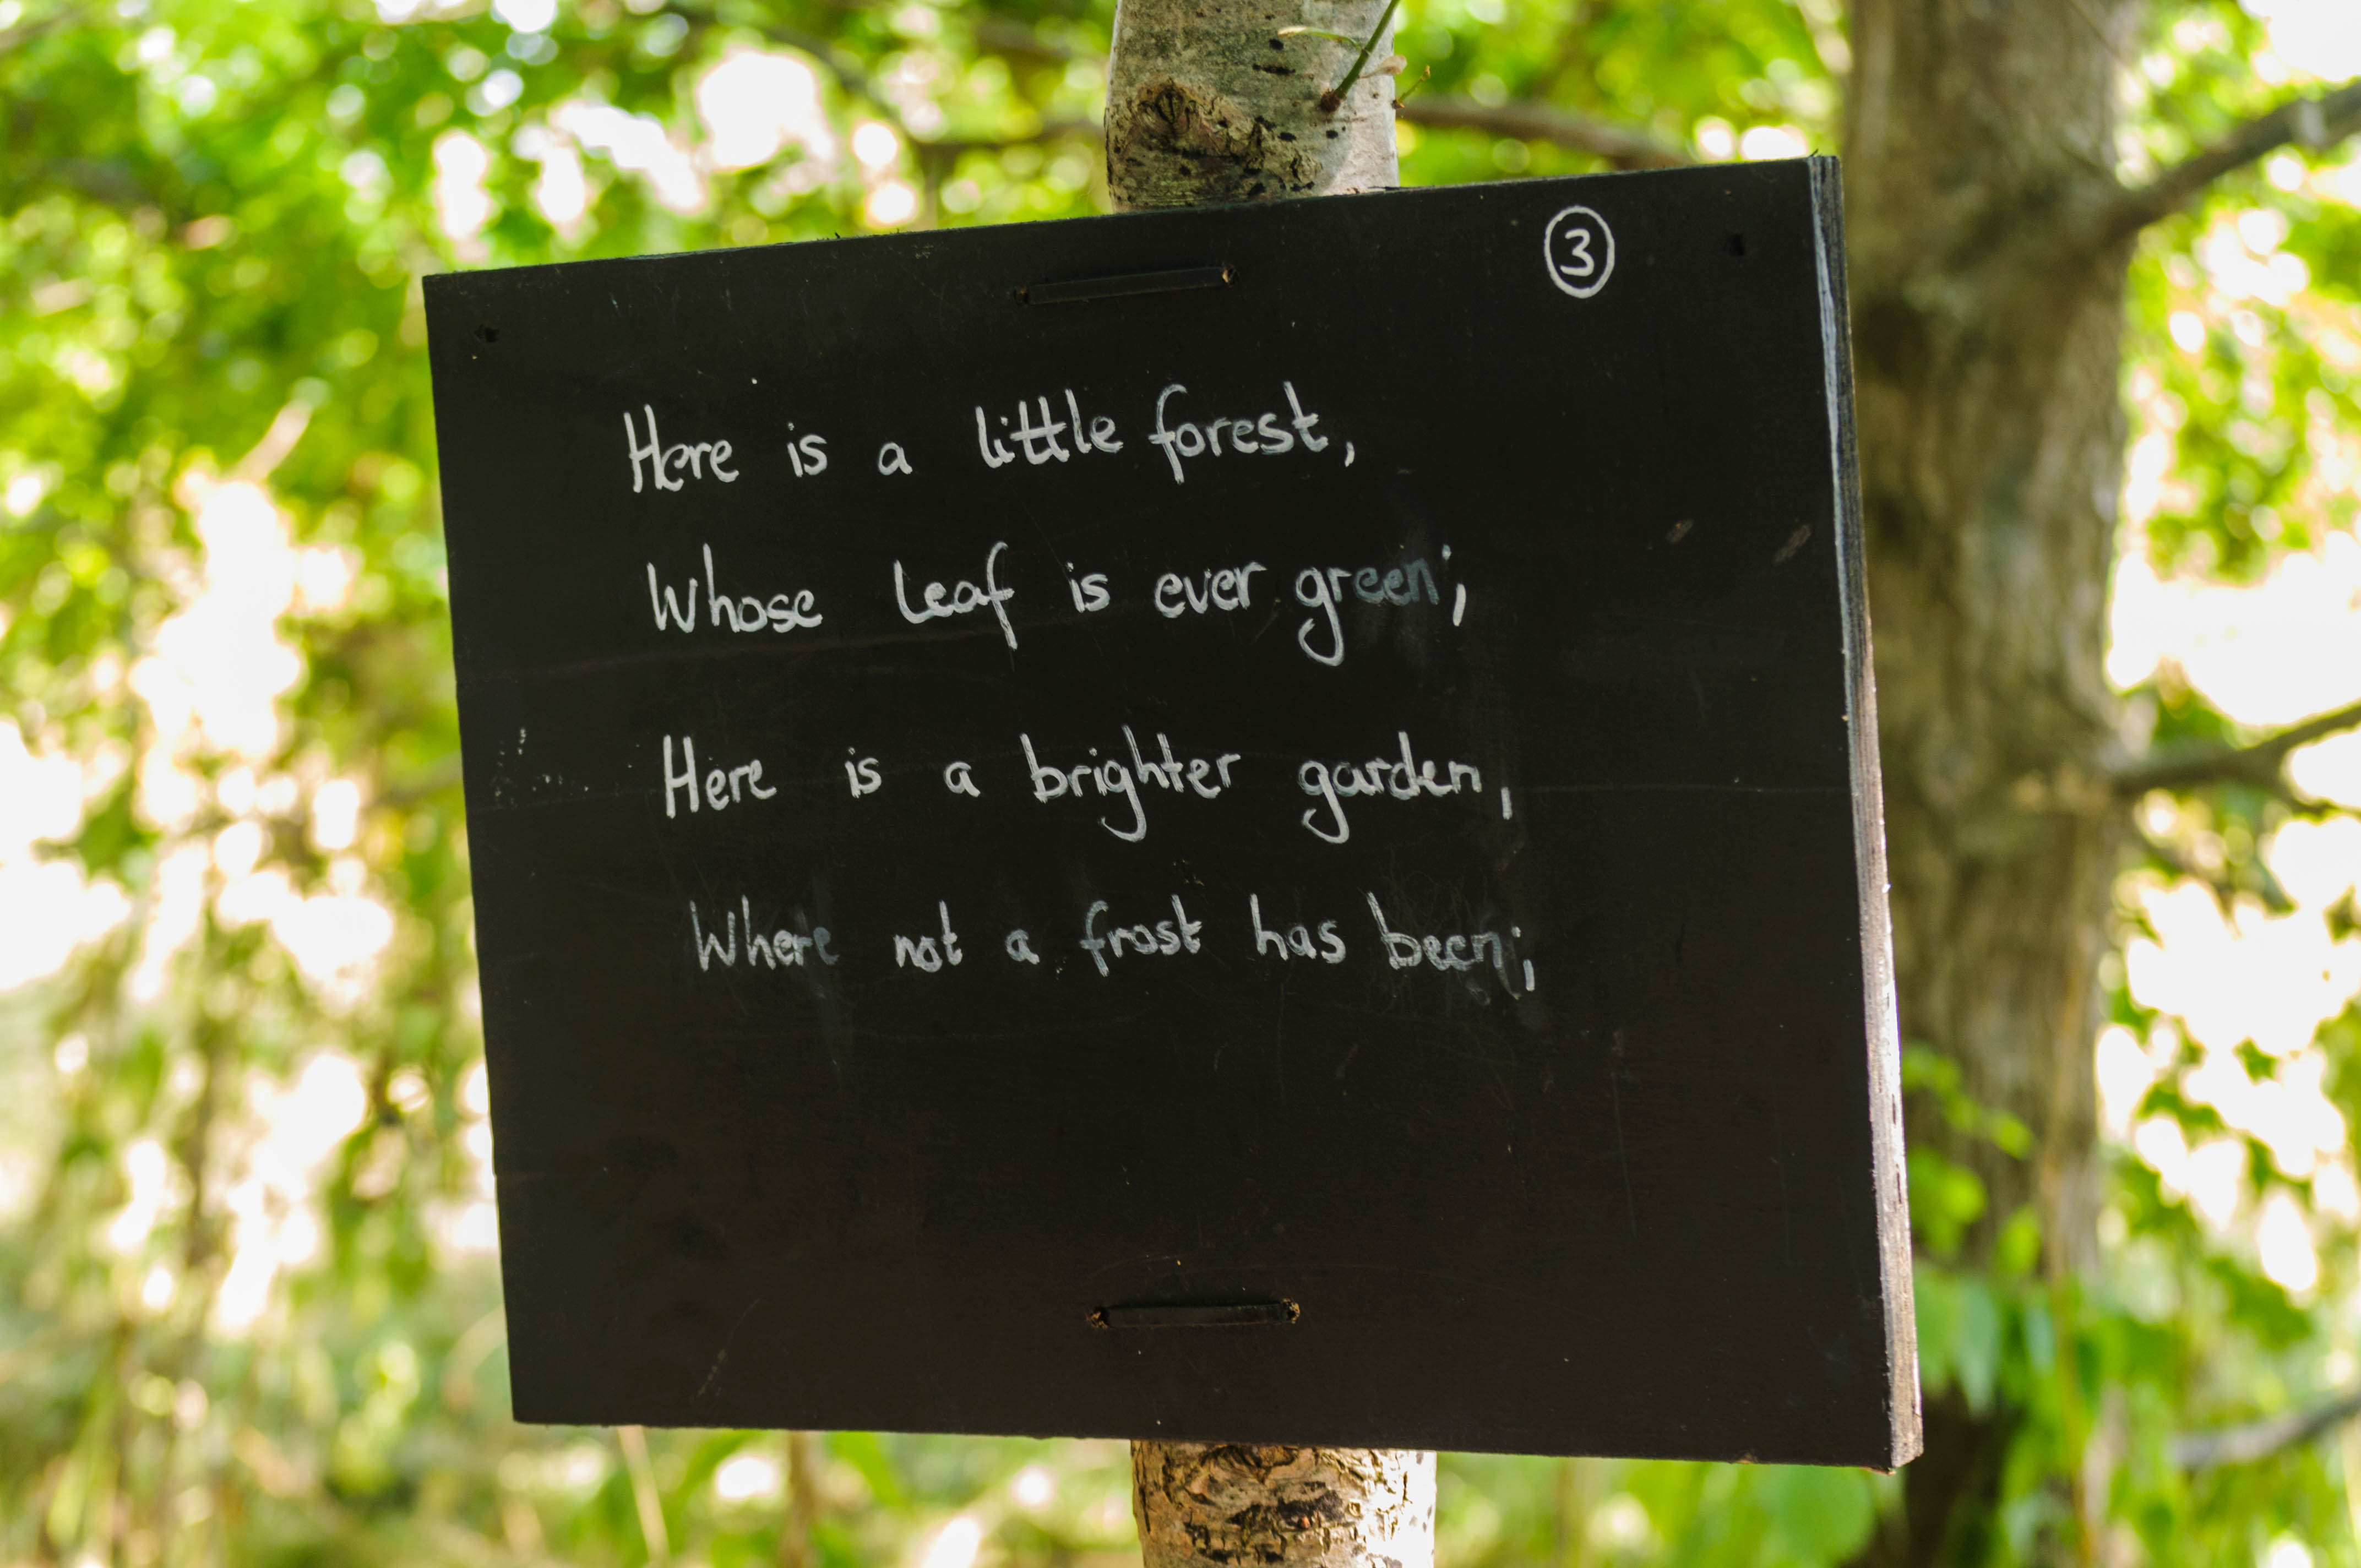 ③
Here is a little forest,
Whose leaf is ever green;
Here is a brighter garden,
Where not a frost has been;